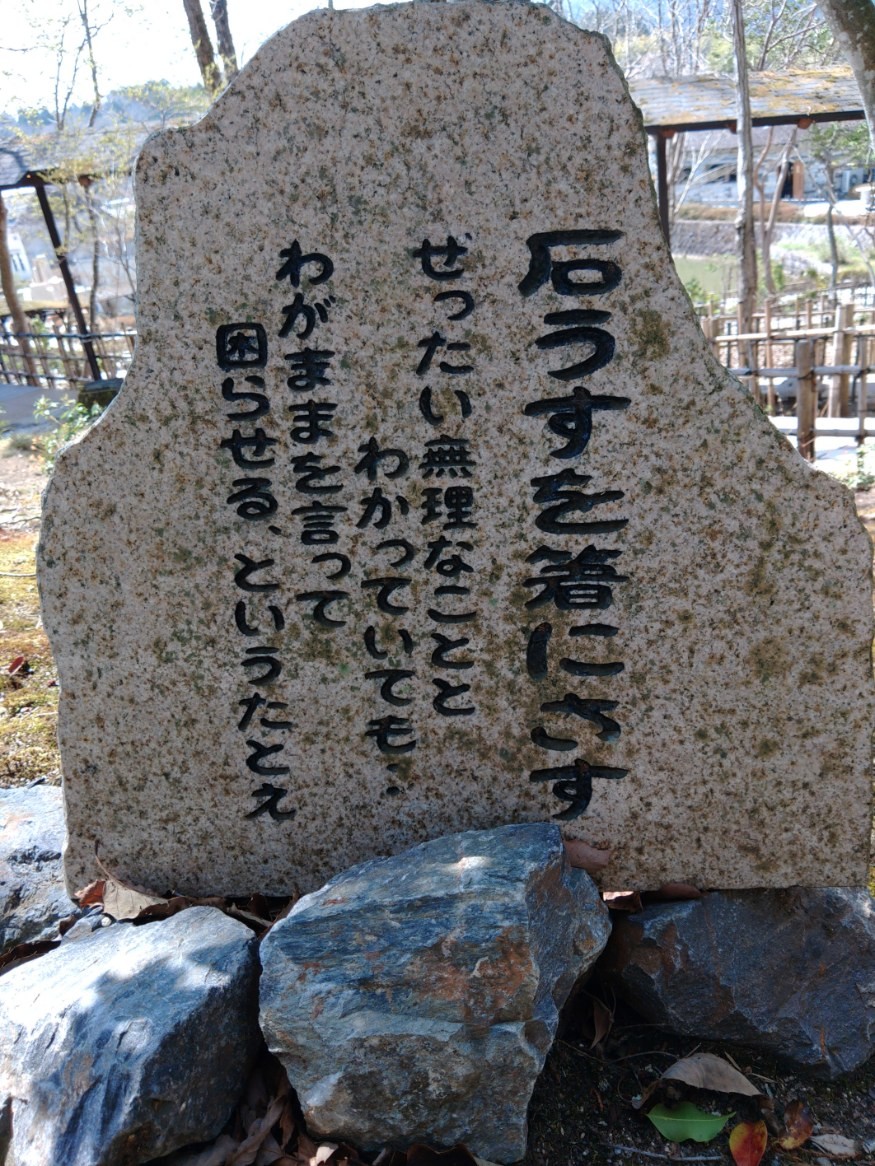 石うすを箸にさす
ぜったい無理なことと
わかっていても‥
わがままを言って
困らせる、というたとえ